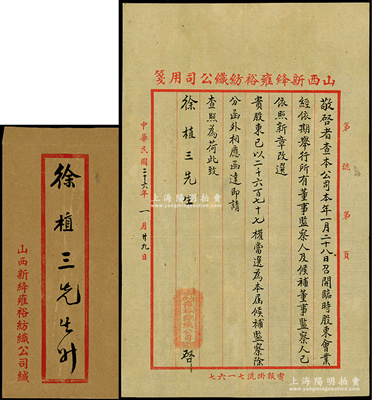 山西新絳雍裕紡織公司用箋
第 號 第 頁
敬啓者查本公司本年一月二十八日召開臨時股東會業
經依期舉行所有董事監察人及候補董事監察人已
依照新章改選
貴股東已以二千六百七十七權當選為本屆候補監察除
分函外相應函達即請
查照為荷此致
徐植三先生
啓
中華民國二十六年 一月廿九日
電報掛號七一六七
徐植三先生
山西新絳雍裕紡織公司緘
上海阳明拍卖